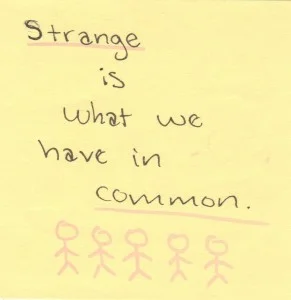 Strange
is
what we
have in
common.